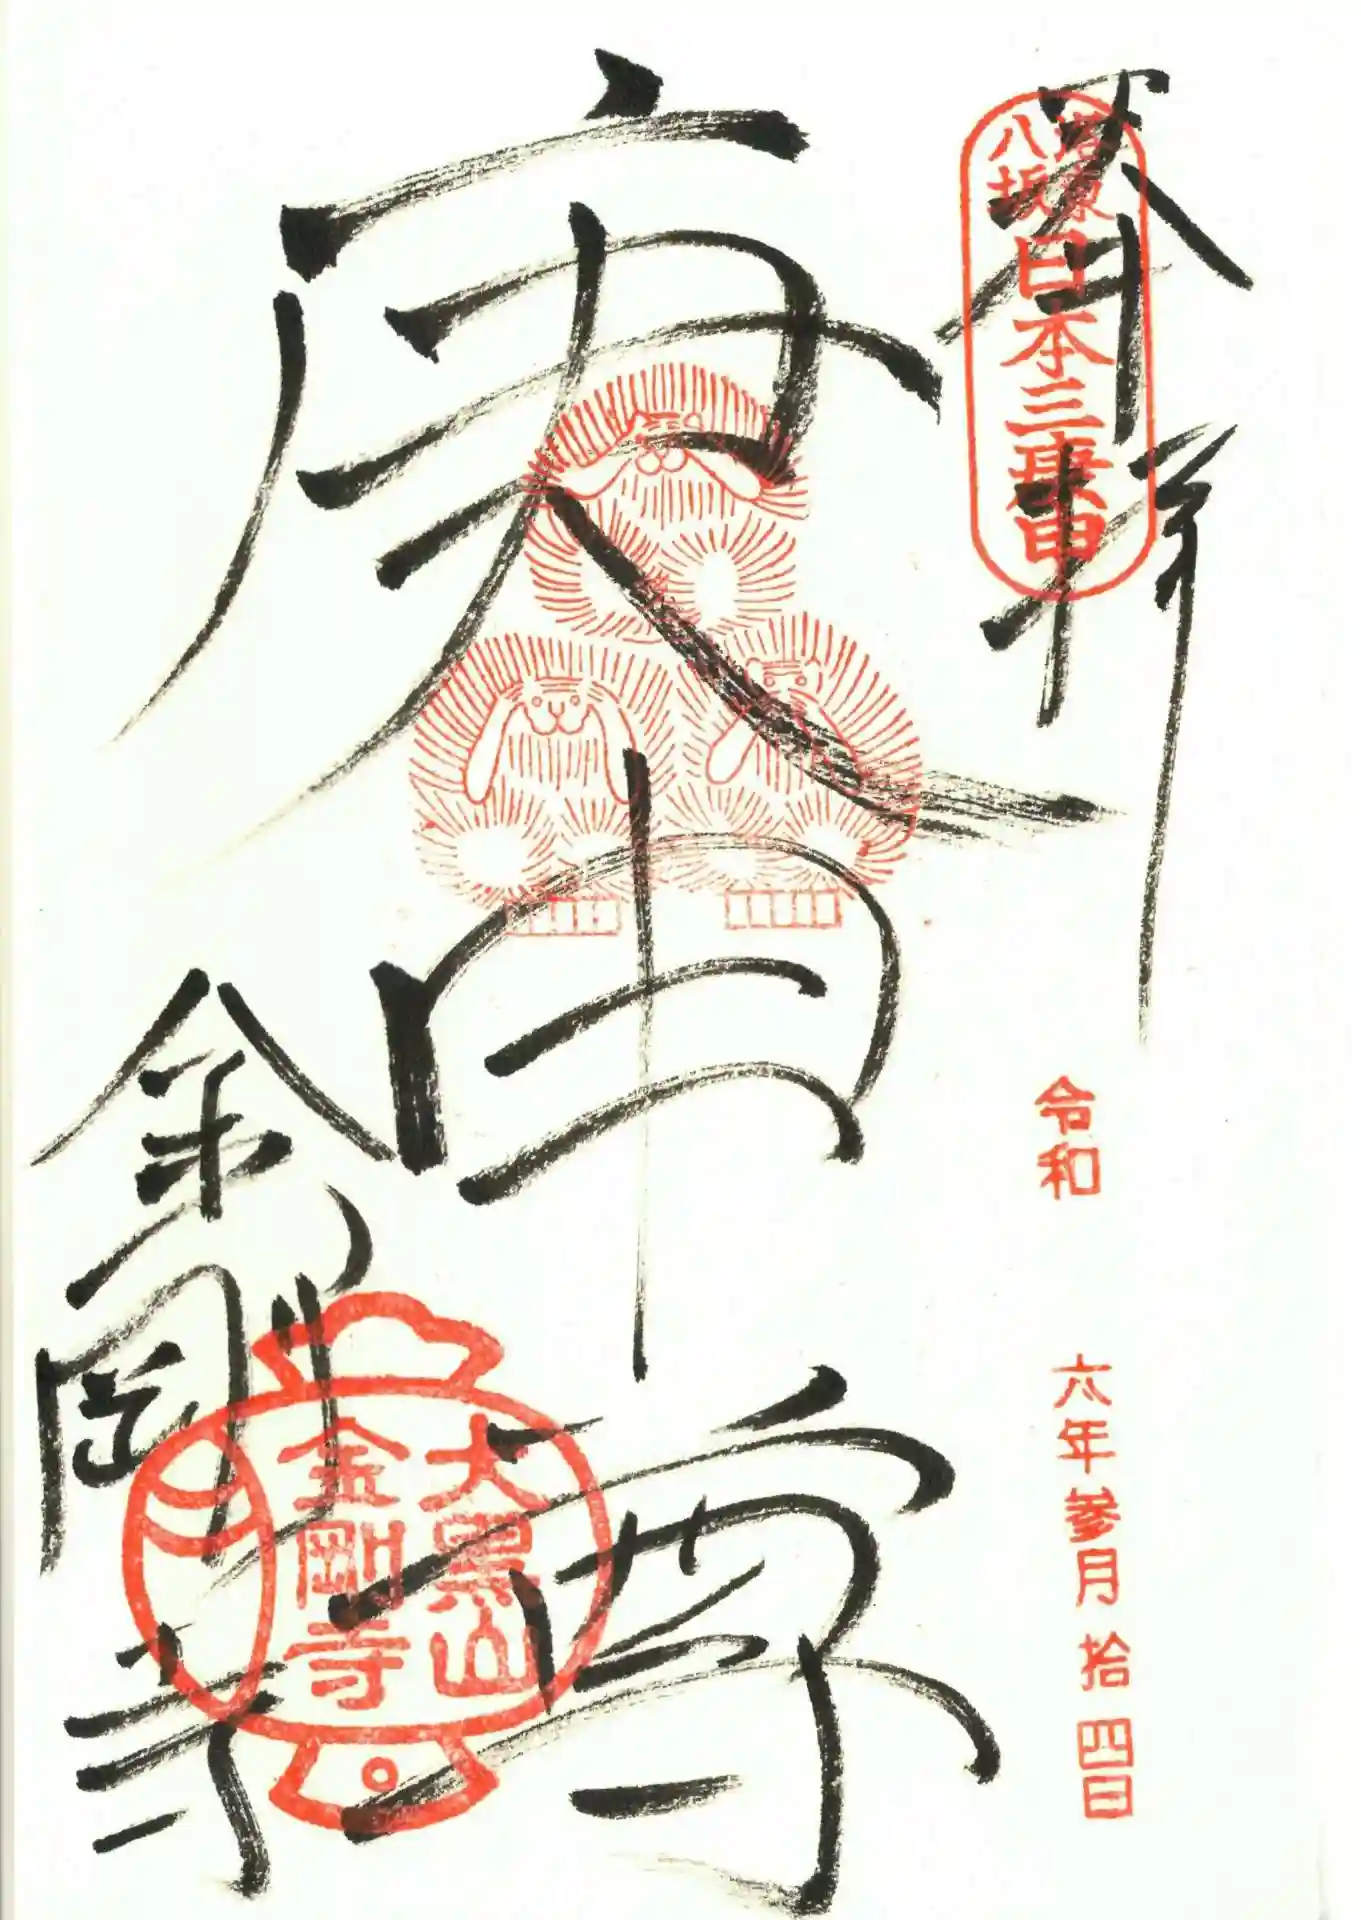 奉拝
洛東
八坂
日本三庚申
令和六年参月拾四日
庚申尊
金剛寺
大黒山
金剛寺